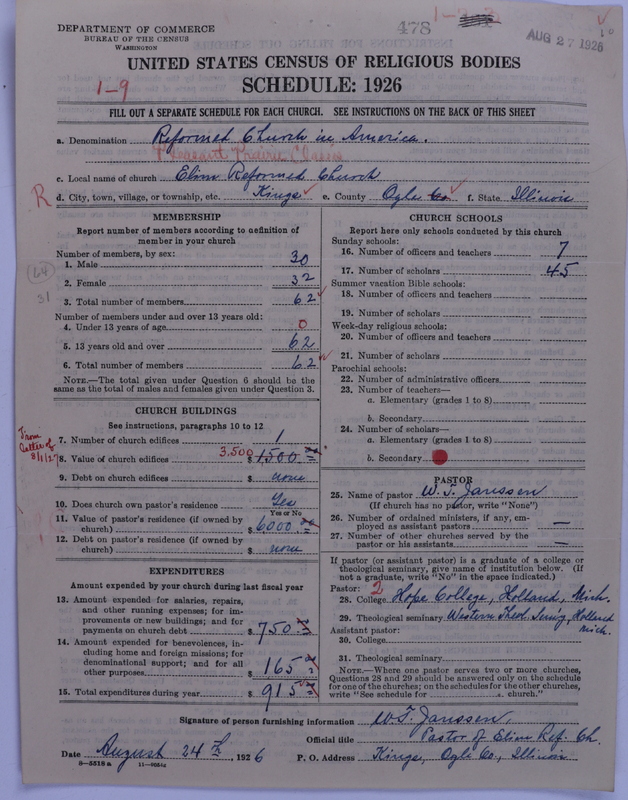 DEPARTMENT OF COMMERCE
BUREAU OF THE CENSUS
WASHINGTON
478
AUG 27 1926
UNITED STATES CENSUS OF RELIGIOUS BODIES
SCHEDULE: 1926
1-9
FILL OUT A SEPARATE SCHEDULE FOR EACH CHURCH. SEE INSTRUCTIONS ON THE BACK OF THIS SHEET
a. Denomination Reformed Church in America.
Pleasant Prairie Classis
c. Local name of church Elim Reformed Church
R
d. City, town, village, or township, etc. Kings e. County Ogle Co. f. State Illinois
MEMBERSHIP
Report number of members according to definition of
member in your church
Number of members, by sex:
1. Male 30
2. Female 32
3. Total number of members 62
64
31
Number of members under and over 13 years old:
4. Under 13 years of age 0
5. 13 years old and over 62
6. Total number of members 62
NOTE.—The total given under Question 6 should be the
same as the total of males and females given under Question 3.
CHURCH BUILDINGS
See instructions, paragraphs 10 to 12
7. Number of church edifices 1
From letter of 8/1/27
8. Value of church edifices 3,500 $ 1500
9. Debt on church edifices $ none
10. Does church own pastor's residence Yes
Yes or No
11. Value of pastor's residence (if owned by
church) $ 6000
12. Debt on pastor's residence (if owned by
church) $ none
EXPENDITURES
Amount expended by your church during last fiscal year
13. Amount expended for salaries, repairs,
and other running expenses; for im-
provements or new buildings; and for
payments on church debt $ 750
14. Amount expended for benevolences, in-
cluding home and foreign missions; for
denominational support; and for all
other purposes $ 165
15. Total expenditures during year $ 915
CHURCH SCHOOLS
Report here only schools conducted by this church
Sunday schools:
16. Number of officers and teachers 7
17. Number of scholars 45
Summer vacation Bible schools:
18. Number of officers and teachers
19. Number of scholars
Week-day religious schools:
20. Number of officers and teachers
21. Number of scholars
Parochial schools:
22. Number of administrative officers
23. Number of teachers—
a. Elementary (grades 1 to 8)
b. Secondary
24. Number of scholars—
a. Elementary (grades 1 to 8)
b. Secondary
PASTOR
25. Name of pastor W. T. Janssen
(If church has no pastor, write "None")
26. Number of ordained ministers, if any, em-
ployed as assistant pastors —
27. Number of other churches served by the
pastor or his assistants —
If pastor (or assistant pastor) is a graduate of a college or
theological seminary, give name of institution below. (If
not a graduate, write "No" in the space indicated.)
Pastor: 2
28. College Hope College, Holland, Mich.
29. Theological seminary Western Theol. Seminy, Holland Mich.
Assistant pastor:
30. College
31. Theological seminary
NOTE.—Where one pastor serves two or more churches,
Questions 28 and 29 should be answered only on the schedule
for one of the churches; on the schedules for the other churches,
write "See schedule for s. church."
Signature of person furnishing information W T. Janssen,
Official title Pastor of Elim Ref. Ch.
Date August 24th, 1926 P. O. Address Kings, Ogle Co., Illinois
8—5518 a